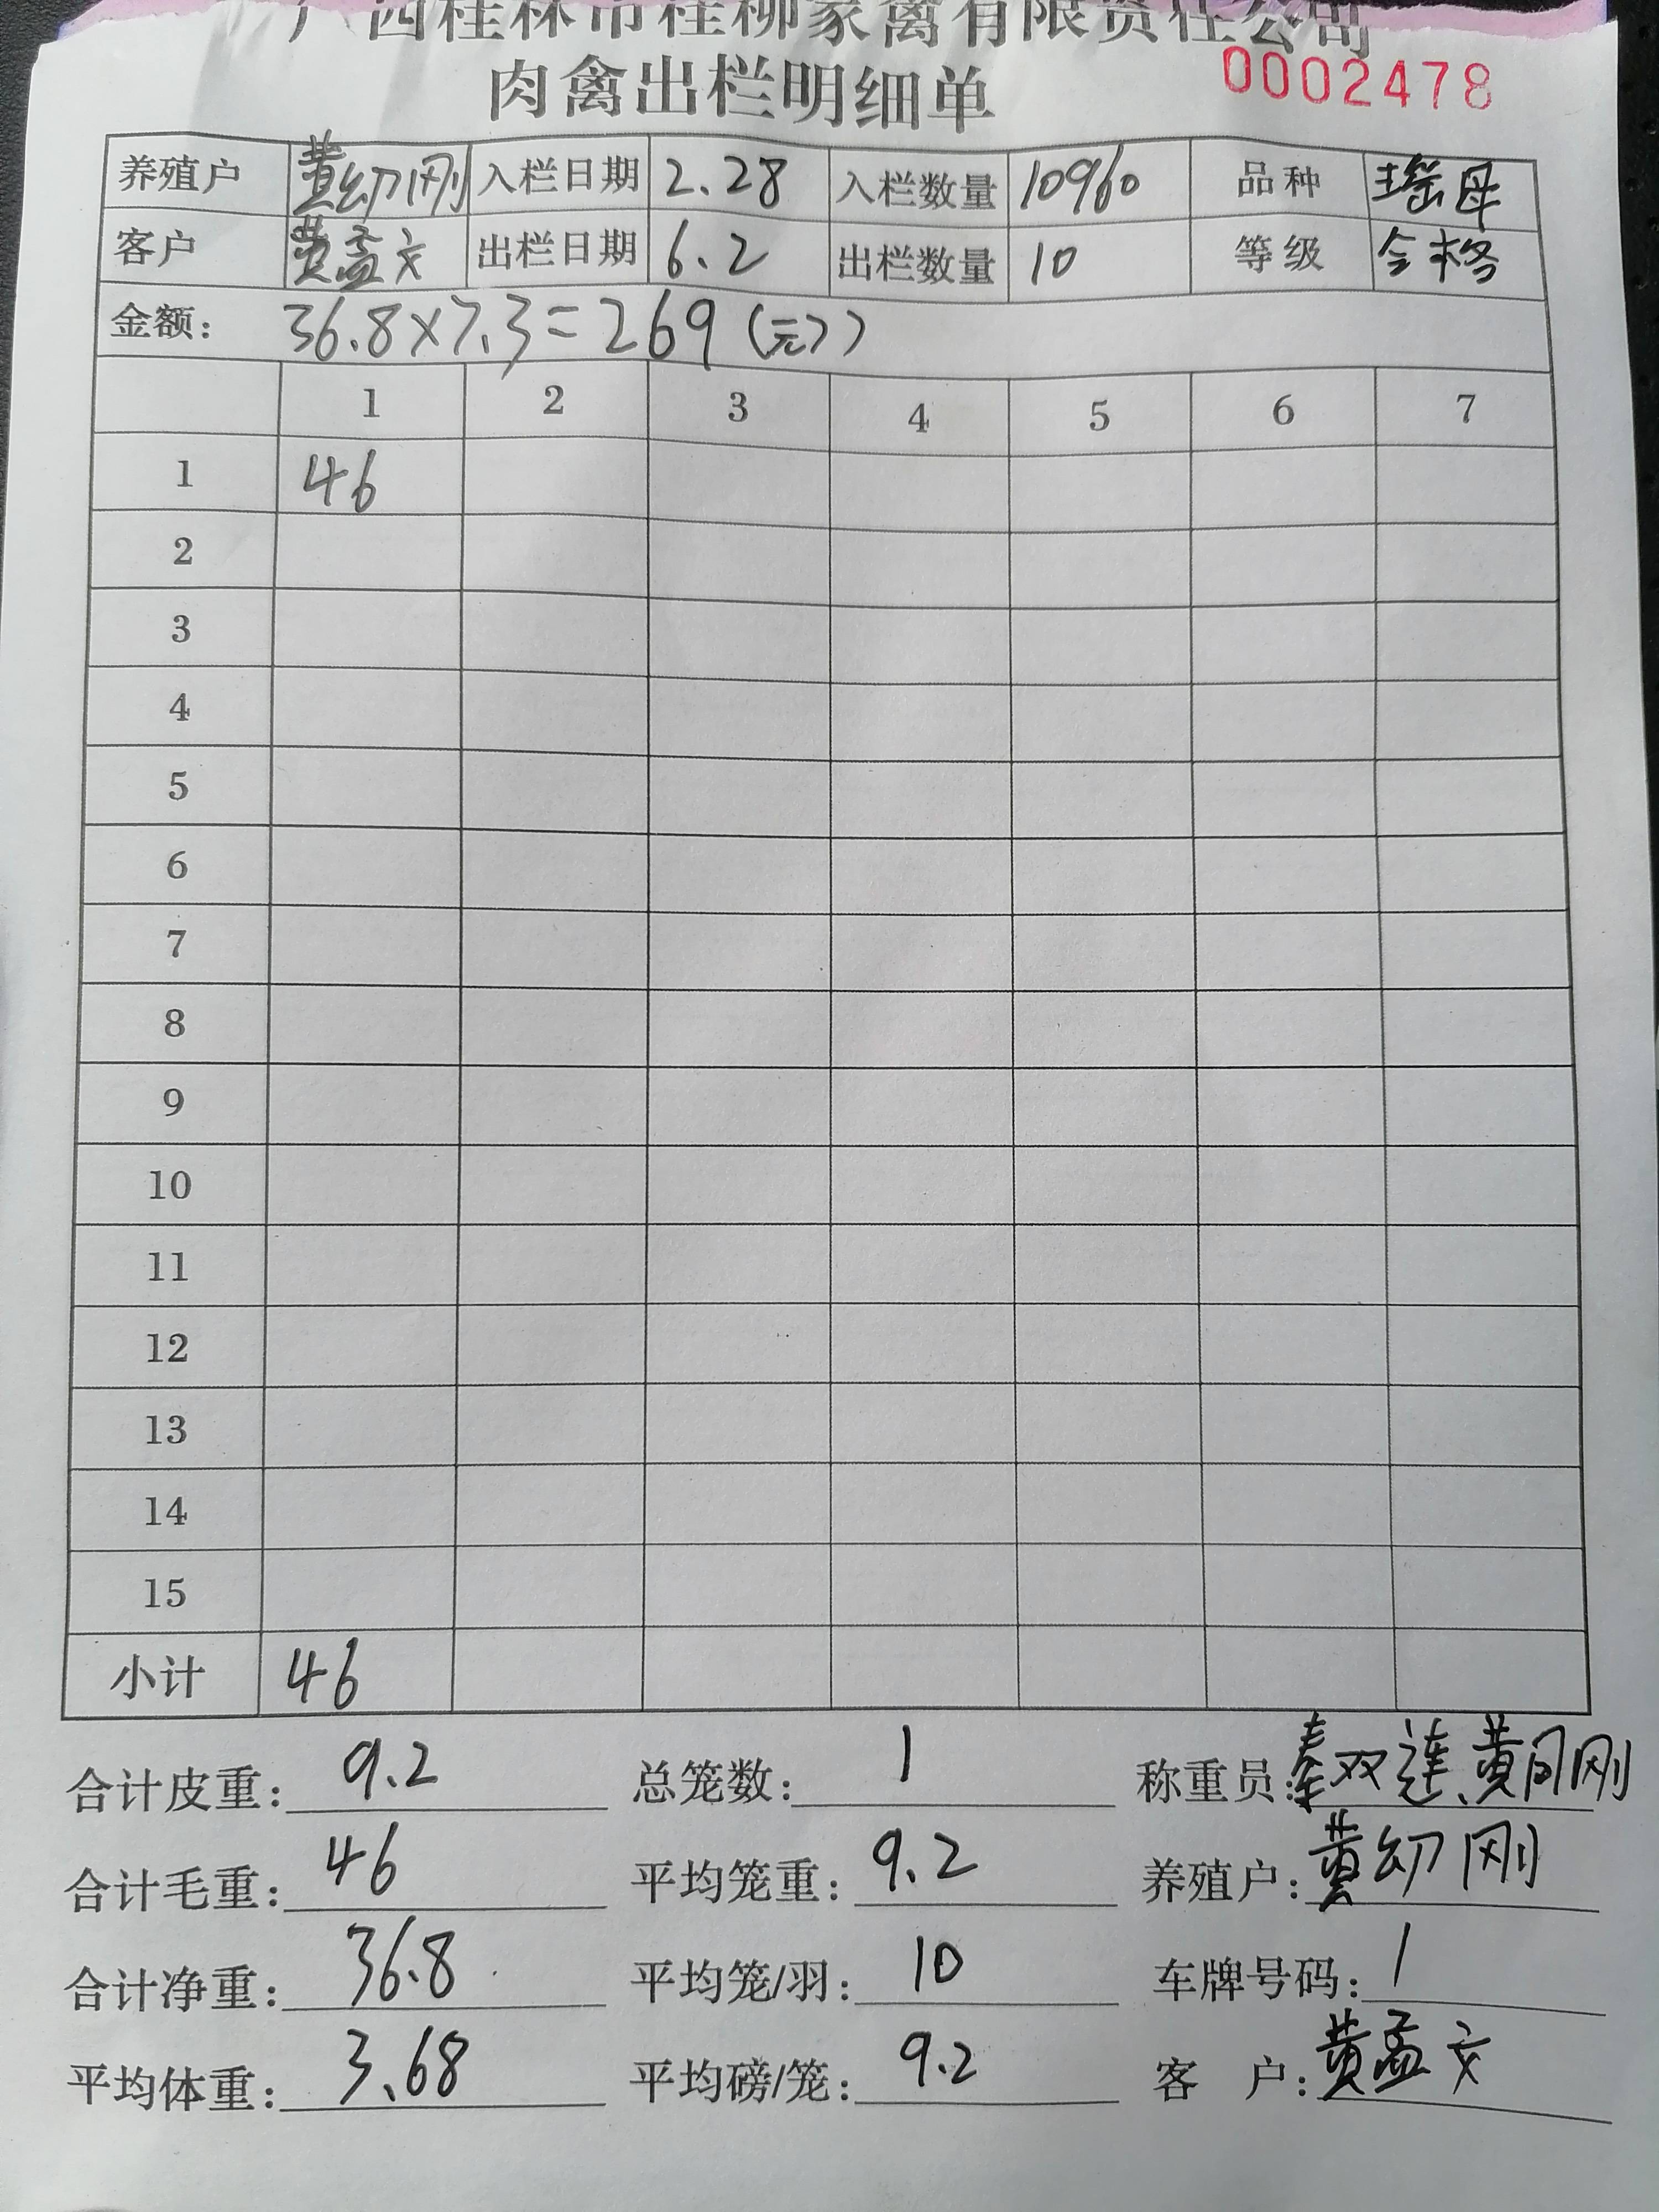 广西桂林市桂柳家禽有限责任公司
肉禽出栏明细单 0002478
养殖户 黄幼刚 入栏日期 2.28 入栏数量 10960 品种 瑶母
客户 黄孟文 出栏日期 6.2 出栏数量 10 等级 合格
金额: 36.8×7.3=269(元)
1 2 3 4 5 6 7
1 46
2
3
4
5
6
7
8
9
10
11
12
13
14
15
小计 46
合计皮重: 9.2 总笼数: 1 称重员: 秦双连、黄同刚
合计毛重: 46 平均笼重: 9.2 养殖户: 黄幼刚
合计净重: 36.8 平均笼/羽: 10 车牌号码: 1
平均体重: 3.68 平均磅/笼: 9.2 客 户: 黄孟文